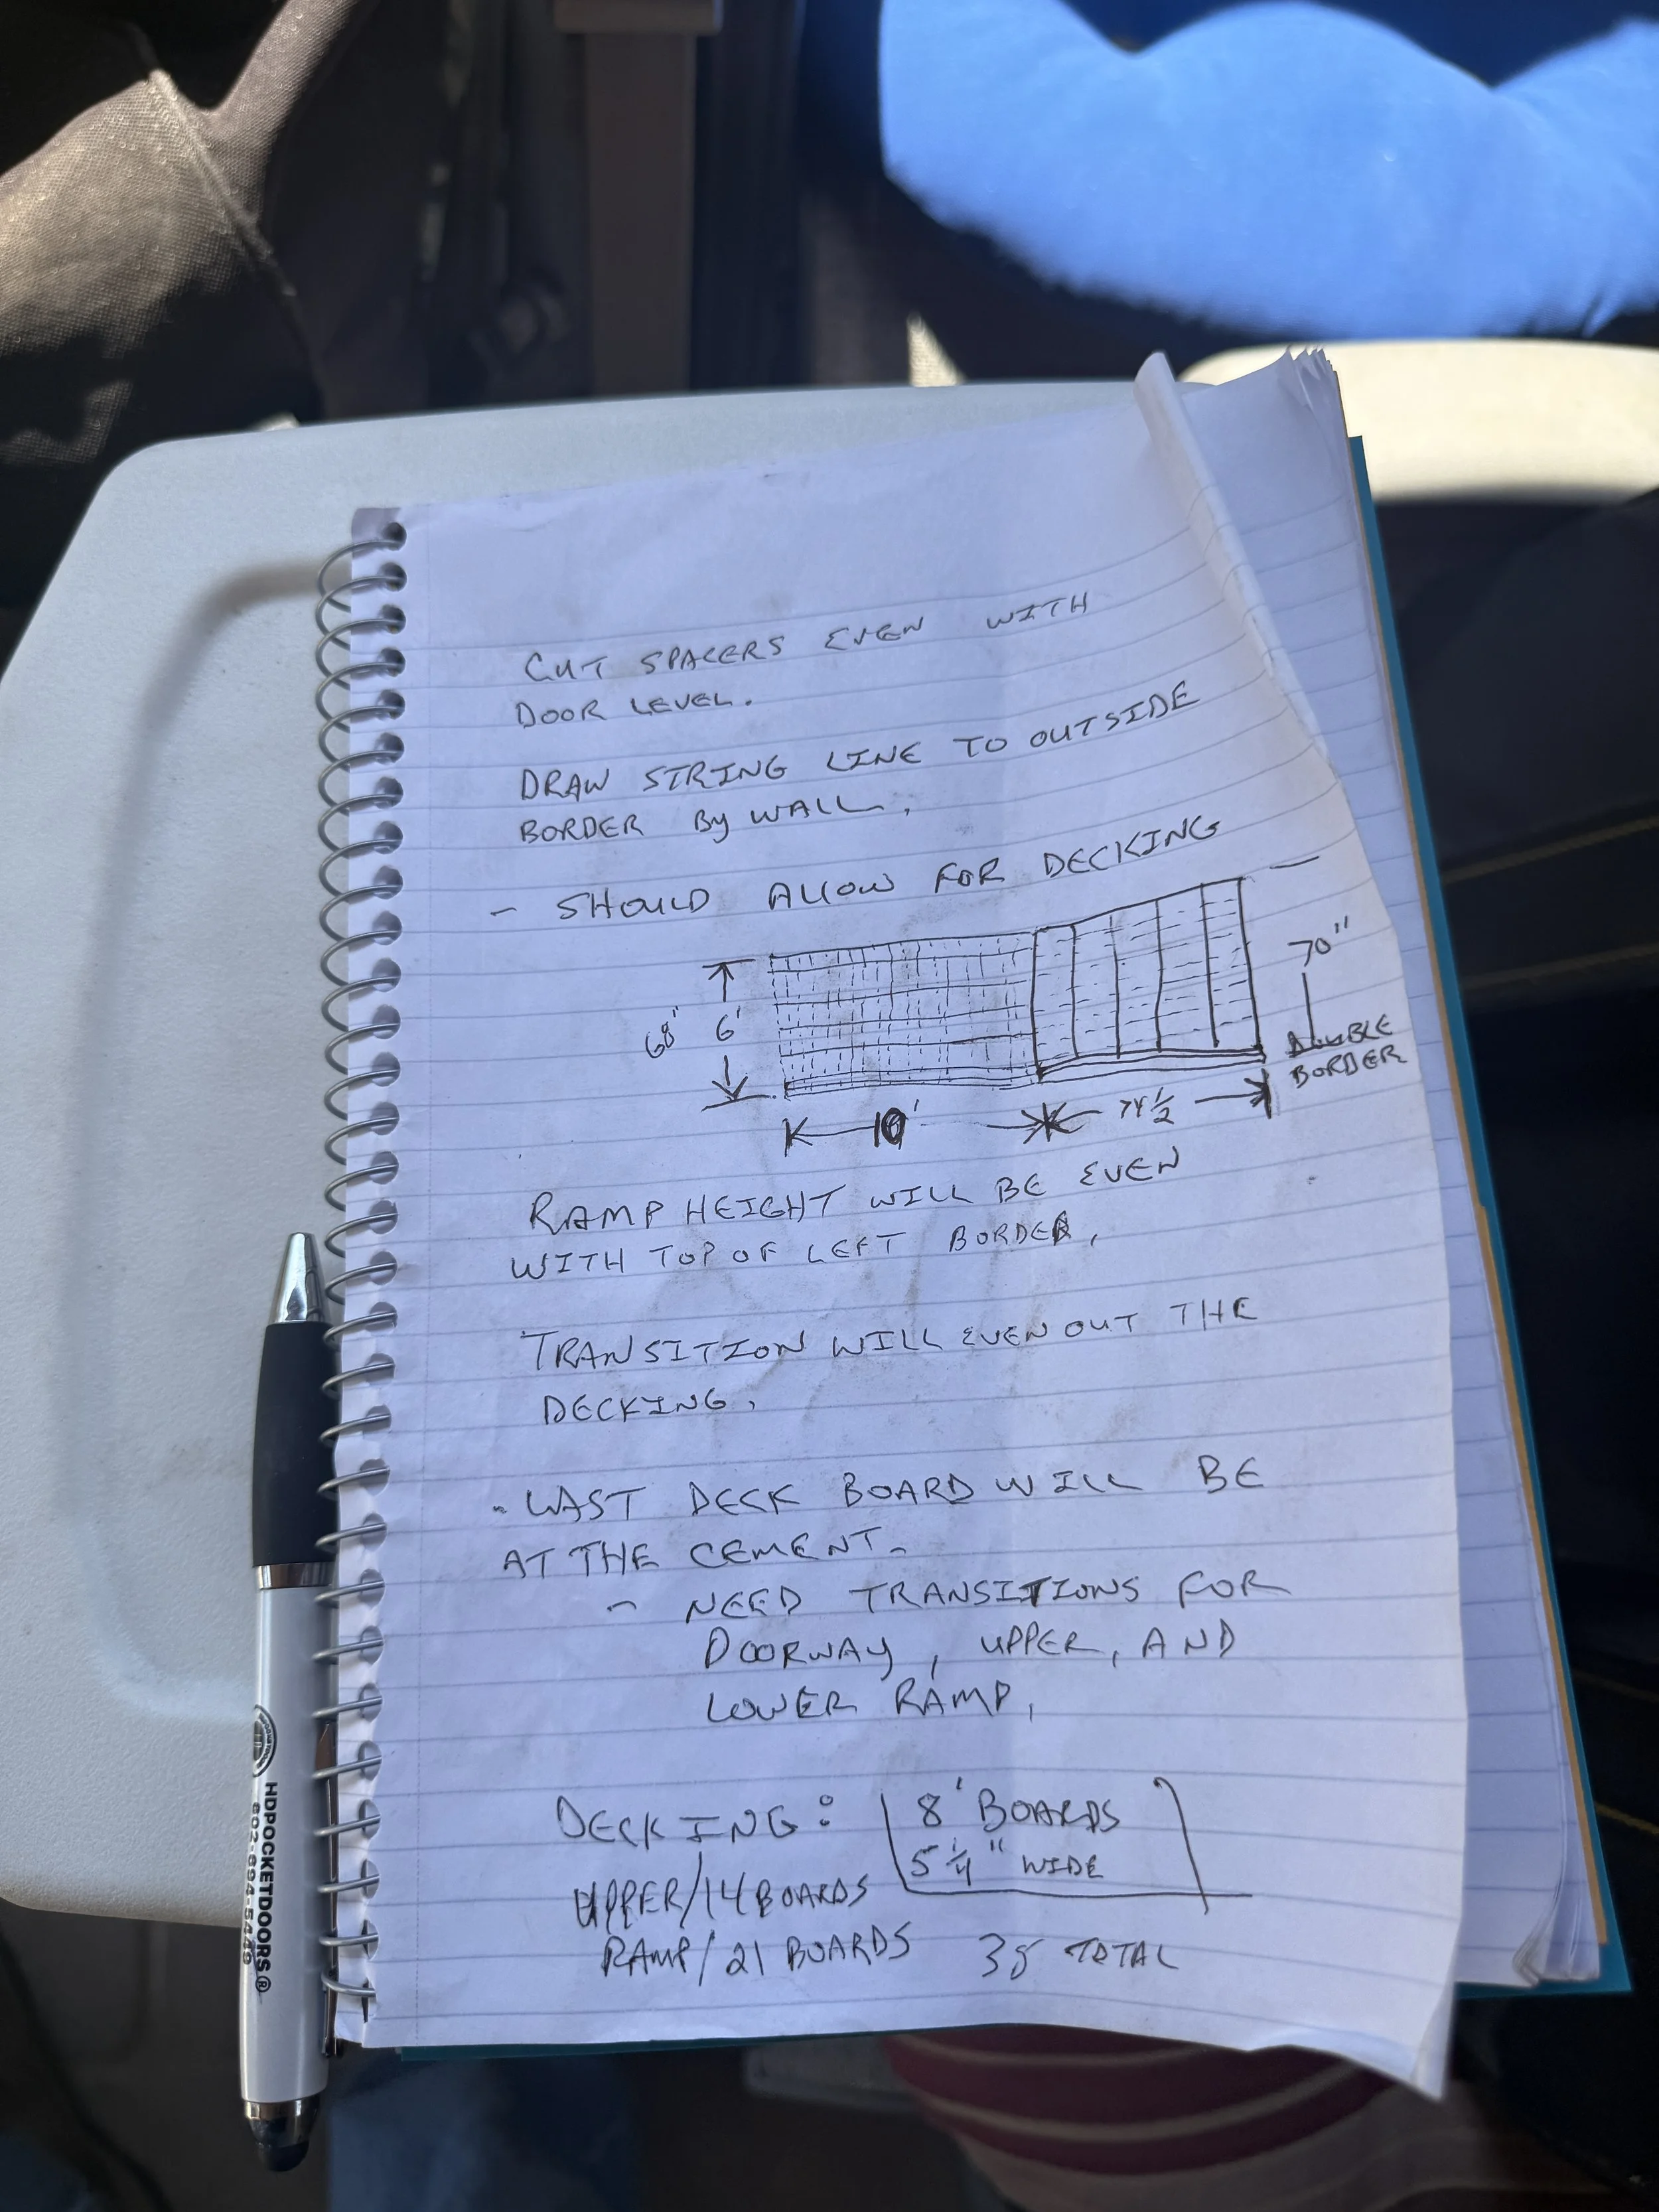 CUT SPACERS EVEN WITH
DOOR LEVEL.
DRAW STRING LINE TO OUTSIDE
BORDER By WALL.
- SHOULD ALLOW FOR DECKING
70"
68" 6'
DOUBLE
BORDER
10' 74 1/2
RAMP HEIGHT WILL BE EVEN
WITH TOP OF LEFT BORDER.
TRANSITION WILL EVEN OUT THE
DECKING.
- LAST DECK BOARD WILL BE
AT THE CEMENT.
- NEED TRANSITIONS FOR
DOORWAY, UPPER, AND
LOWER RAMP.
DECKING: 8' BOARDS
5 1/4" WIDE
UPPER/14 BOARDS
RAMP/21 BOARDS 35 TOTAL
HDPOCKETDOORS®